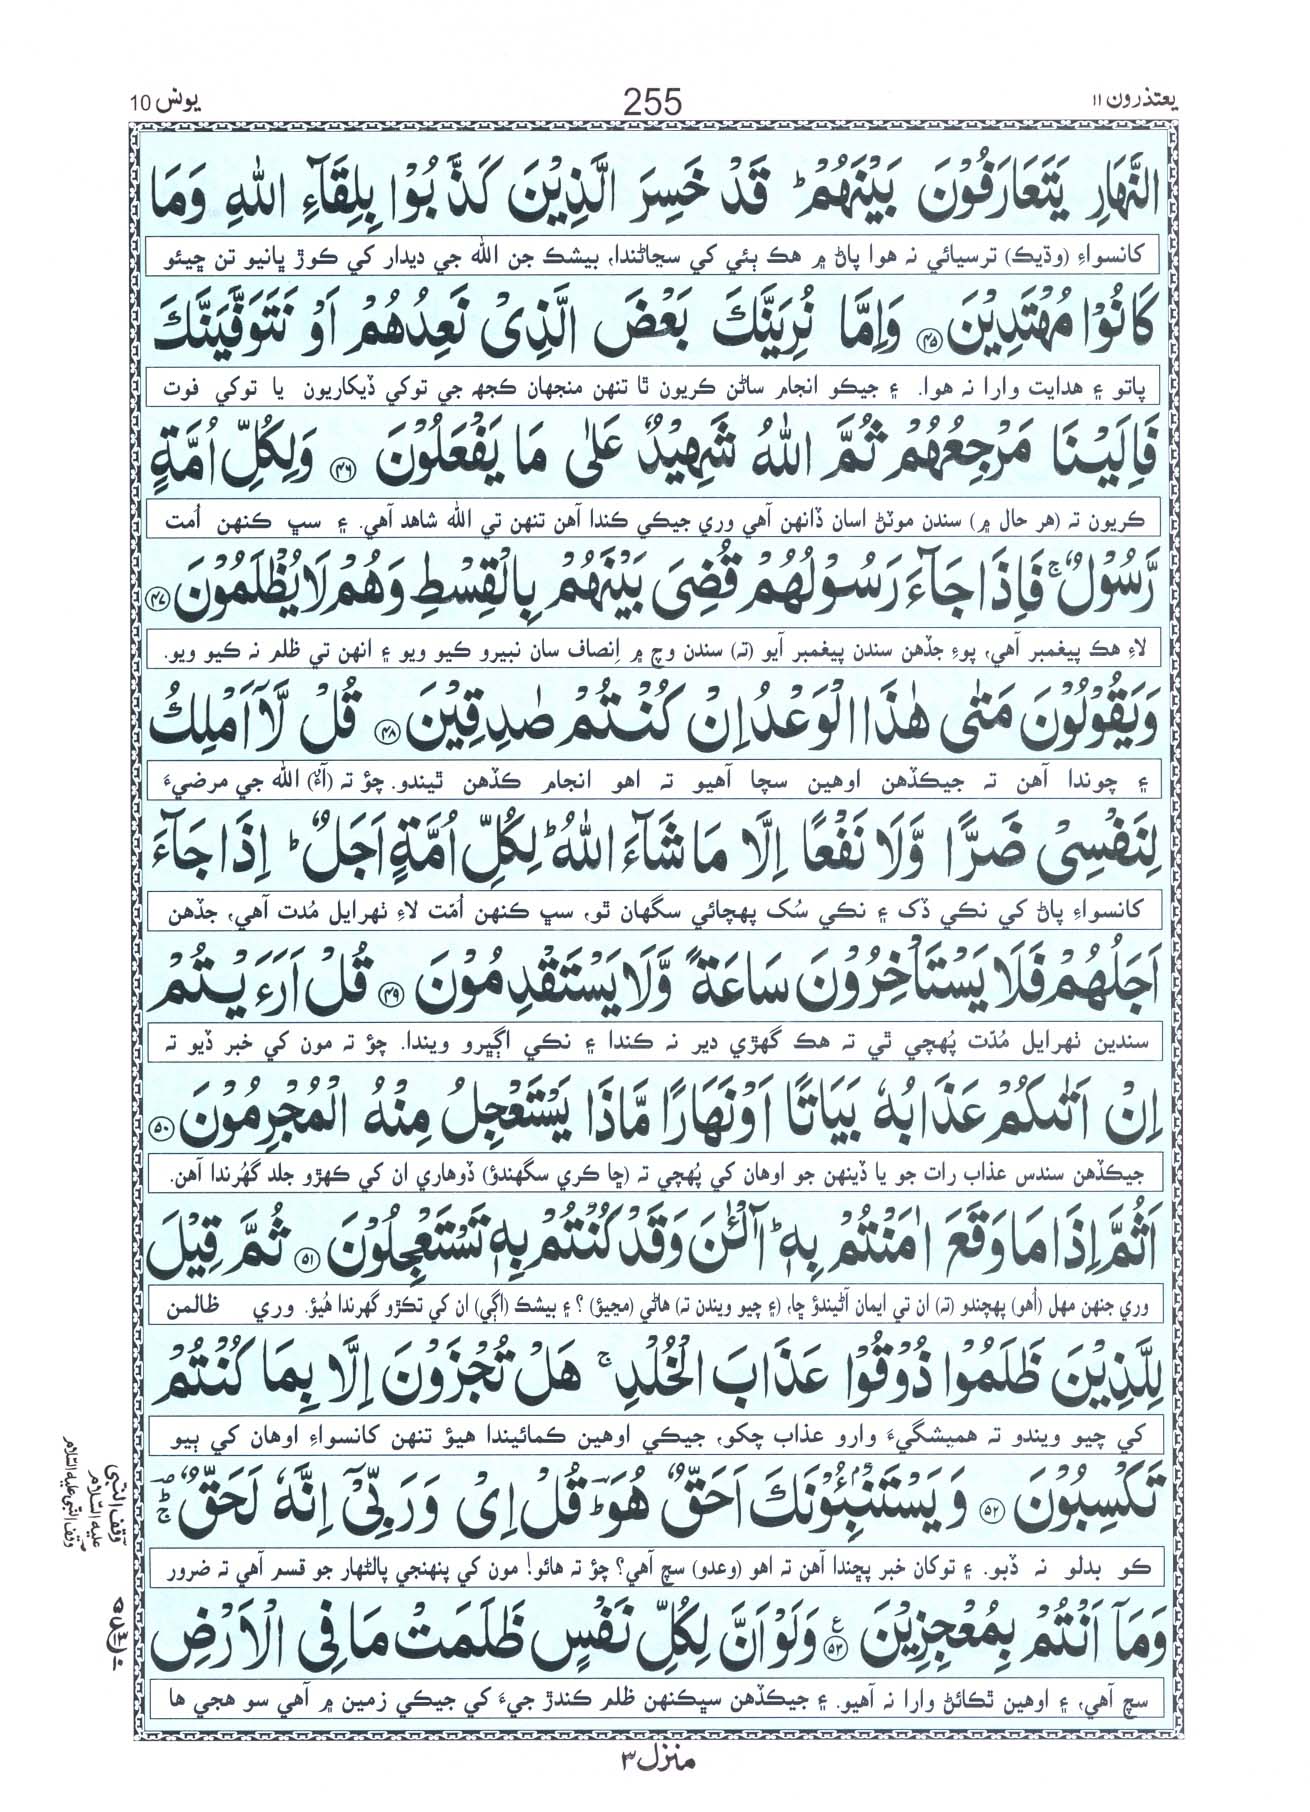 يعتذرون ١١
255
يونس 10
النَّهَارِ يَتَعَارَفُوْنَ بَيْنَهُمْ ؕ قَدْ خَسِرَ الَّذِيْنَ كَذَّبُوْا بِلِقَآءِ اللّٰهِ وَمَا
کانسواءِ (وڌيڪ) ترسيائي نہ هوا پاڻ ۾ هڪ ٻئي کي سڃاڻندا، بيشڪ جن الله جي ديدار کي ڪوڙ ڀانيو تن ڇيئو
كَانُوْا مُهْتَدِيْنَ ﴿۴۵﴾ وَاِمَّا نُرِيَنَّكَ بَعْضَ الَّذِيْ نَعِدُهُمْ اَوْ نَتَوَفَّيَنَّكَ
پاتو ۽ هدايت وارا نہ هوا. ۽ جيڪو انجام ساڻن ڪريون ٿا تنهن منجهان ڪجهہ جي توکي ڏيکاريون يا توکي فوت
فَاِلَيْنَا مَرْجِعُهُمْ ثُمَّ اللّٰهُ شَهِيْدٌ عَلٰى مَا يَفْعَلُوْنَ ﴿۴۶﴾ وَلِكُلِّ اُمَّةٍ
ڪريون تہ (هر حال ۾) سندن موٽڻ اسان ڏانهن آهي وري جيڪي ڪندا آهن تنهن تي الله شاهد آهي. ۽ سڀ ڪنهن اُمت
رَّسُوْلٌ ۚ فَاِذَا جَآءَ رَسُوْلُهُمْ قُضِىَ بَيْنَهُمْ بِالْقِسْطِ وَهُمْ لَا يُظْلَمُوْنَ ﴿۴۷﴾
لاءِ هڪ پيغمبر آهي، پوءِ جڏهن سندن پيغمبر آيو (تہ) سندن وچ ۾ اِنصاف سان نبيرو ڪيو ويو ۽ انهن تي ظلم نہ ڪيو ويو.
وَيَقُوْلُوْنَ مَتٰى هٰذَا الْوَعْدُ اِنْ كُنْتُمْ صٰدِقِيْنَ ﴿۴۸﴾ قُلْ لَّاۤ اَمْلِكُ
۽ چوندا آهن تہ جيڪڏهن اوهين سچا آهيو تہ اهو انجام ڪڏهن ٿيندو. چؤ تہ (آءٌ) الله جي مرضيءَ
لِنَفْسِيْ ضَرًّا وَّلَا نَفْعًا اِلَّا مَا شَآءَ اللّٰهُ ؕ لِكُلِّ اُمَّةٍ اَجَلٌ ؕ اِذَا جَآءَ
کانسواءِ پاڻ کي نڪي ڏک ۽ نڪي سُک پهچائي سگهان ٿو، سڀ ڪنهن اُمّت لاءِ ٺهرايل مُدت آهي، جڏهن
اَجَلُهُمْ فَلَا يَسْتَاْخِرُوْنَ سَاعَةً وَّلَا يَسْتَقْدِمُوْنَ ﴿۴۹﴾ قُلْ اَرَءَيْتُمْ
سندين ٺهرايل مُدّت پُهچي ٿي تہ هڪ گهڙي دير نہ ڪندا ۽ نڪي اڳڀرو ويندا. چؤ تہ مون کي خبر ڏيو تہ
اِنْ اَتٰىكُمْ عَذَابُهٗ بَيَاتًا اَوْ نَهَارًا مَّاذَا يَسْتَعْجِلُ مِنْهُ الْمُجْرِمُوْنَ ﴿۵۰﴾
جيڪڏهن سندس عذاب رات جو يا ڏينهن جو اوهان کي پُهچي تہ (ڇا ڪري سگهندؤ) ڏوهاري ان کي ڪهڙو جلد گهُرندا آهن.
اَثُمَّ اِذَا مَا وَقَعَ اٰمَنْتُمْ بِهٖ ؕ آٰلْـٰٔنَ وَقَدْ كُنْتُمْ بِهٖ تَسْتَعْجِلُوْنَ ﴿۵۱﴾ ثُمَّ قِيْلَ
وري جنهن مهل (اُهو) پهچندو (تہ) ان تي ايمان آڻيندؤ ڇا، (۽ چيو ويندن تہ) هاڻي (مڃيؤ) ؟ ۽ بيشڪ (اڳي) ان کي تڪڙو گهرندا هُيؤ. وري ظالمن
لِلَّذِيْنَ ظَلَمُوْا ذُوْقُوْا عَذَابَ الْخُلْدِ ۚ هَلْ تُجْزَوْنَ اِلَّا بِمَا كُنْتُمْ
کي چيو ويندو تہ هميشگيءَ وارو عذاب چکو، جيڪي اوهين ڪمائيندا هيؤ تنهن کانسواءِ اوهان کي ٻيو
تَكْسِبُوْنَ ﴿۵۲﴾ وَيَسْتَنْۢبِـُٔوْنَكَ اَحَقٌّ هُوَ ؔؕ قُلْ اِيْ وَرَبِّيْۤ اِنَّهٗ لَحَقٌّ ؔؕۚ
ڪو بدلو نہ ڏبو. ۽ توکان خبر پڇندا آهن تہ اهو (وعدو) سچ آهي؟ چؤ تہ هائو! مون کي پنهنجي پالڻهار جو قسم آهي تہ ضرور
وقف النبی علیہ السّلام
وقف النبی علیہ السّلام
وَمَاۤ اَنْتُمْ بِمُعْجِزِيْنَ ﴿۵۳﴾ وَلَوْ اَنَّ لِكُلِّ نَفْسٍ ظَلَمَتْ مَا فِى الْاَرْضِ
سچ آهي، ۽ اوهين ٿڪائڻ وارا نہ آهيو. ۽ جيڪڏهن سڀڪنهن ظلم ڪندڙ جيءَ کي جيڪي زمين ۾ آهي سو هجي ها
منزل ٣